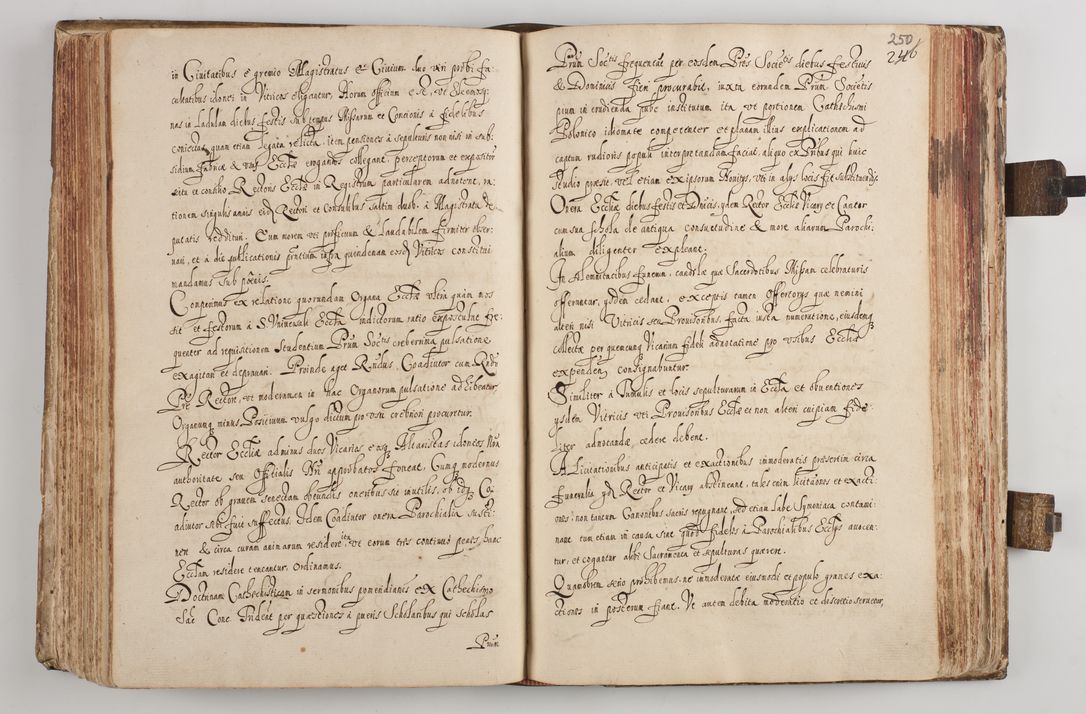 in Civitatibus e gremio Magistratus et Civium duo viri probi fa:
cultatibus idonei in Vitricos eligantur, Horum officium est, ut Elemosy:
nas in Ladulam diebus festis sub tempus Missarum et Concionis à fidelibus
coniectas, quam etiam legata relicta, item pensiones à sepulturis non nisi in sub:
sidium fabricæ & usus Eccłæ erogandas colligant, perceptorum et expositor
situ et consilio Rectoris Eccłæ in Registrum particularem adnotent, ra:
tionem singulis annis eidem Rectori et Consulibus saltim duob: à Magistratu de
putatis reddituri. Eum morem uti proficuum & laudabilem firmiter obser:
vari, et à die publicationis præsentium infra quindenam eosdem Vitricos constitui
mandamus sub pœnis.
Comperimus ex relatione quorundam Organa Eccłæ ultra quàm mos
sit et festorum à S. Universali Eccła indictorum ratio exposcunt fre:
quenter ad requisitionem Studentium Prum Soctis creberrima pulsatione
exagitari et depravari. Proinde aget Rndus. Coadiutor cum Rndo
Pre Rectore, ut moderamen in hac Organorum pulsatione adhibeatur.
Organumq minus Positivum vulgo dictum pro usu crebriori procuretur.
Rector Eccliæ ad minus duos Vicarios eosq Altaristas idoneos Nra
authoritate seu Officialis Nri approbatos foveat. Cumq modernus
Rector ob gravem senectam obeundis oneribus sit inutilis, ob idq Co:
adiutor sibi fuit suffectus. Idem Coadiutor onera Parochialia susti:
nere & circa curam animarum residere ita, ut eorum tres continuo penes hanc
Ecclam residere teneantur. Ordinamus.
Doctrinam Cathechisticam in sermonibus pomeridianis ex Cathechismo
Sac Conc Trident per quæstiones à pueris Scholaribus qui scholas
Prum
250
246
Prum Soctis frequentant per eosdem Pres Societis diebus festivis
& Dominicis fieri procurabit, iuxta eorundem Prum Societis
pium in erudienda pube institutum ita ut portionem Cathechismi
Polonico idiomate congerenter et planam illius explicationem ad
captum rudioris populi interpretandam faciat, aliquo ex Pribus qui huic
studio præsit, vel etiam ex ipsorum Novitys, uti in alys locis fit substituendo.
Onera Ecclæ diebus festis et Dnicis, ydem Rector Eccliæ Vicary et Cantor
cum sua schola de antiqua consuetudine & more aliarum Parochi:
alium diligenter expleant.
In Solemnitatibus funerum, candelæ quæ Sacerdotibus Missam celebraturis
offeruntur, ysdem cedant, exceptis tamen Offertorys quæ nemini
alteri nisi Vitricis seu Provisoribus, facta iusta numeratione, eiusdemq
collectæ per quemcunq Vicarium fideli adnotatione pro usibus Eccłæ
expenden consignabuntur.
Similiter à Pannulis et locis sepulturarum in Eccła et obventiones
ysdem Vitricis uti Provisoribus Eccłæ et non alteri cuipiam fide:
liter adnotandæ, cedere debent.
A Licitationibus anticipatis et exactionibus immoderatis præsertim circa
funeralia ydem Rector et Vicary abstineant, tales enim licitationes et exacti:
ones, non tantum Canonibus sacris repugnant, sed etiam labe Symoniaca contami:
nant tum etiam in causa sunt quod fideles à Parochialibus Ecclys avocen:
tur, et cogantur alibi Sacramenta et sepulturas quærere.
Quamobrem serio prohibemus, ne immoderatæ eiusmodi et populo graves exa:
ctiones in posterum fiant. Ut autem debita moderatio et discretio servetur,